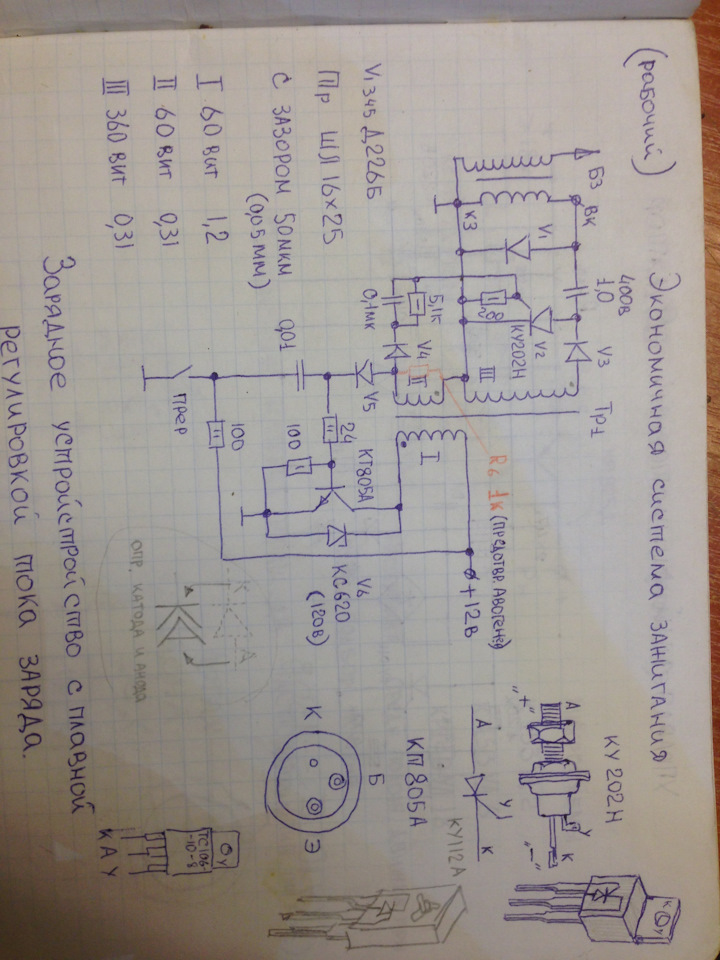 (рабочий)
Экономичная система зажигания
V₁345 Д226Б
Пр ШЛ 16×25
с зазором 50мкм
(0,05мм)
I 60 вит 1,2
II 60 вит 0,31
III 360 вит 0,31
БЗ
ВК
КЗ
V₁
400в
1,0
V₂
КУ202Н
V₃
III
Тр1
5,1к
0,1мк
V4
II
I
V5
R6 1к (предотвр. Автоген)
0,01
24
100
КТ805А
V6
КС620
(120в)
+12в
100
прер
опр. катода и анода
К
А
КУ202Н
А
"+"
У
К
"–"
А
У
К
К
У
КП805А
К
Б
Э
КУ112А
У
ТС106
-10-8
К А У
Зарядное устройстройство с плавной
регулировкой тока заряда.